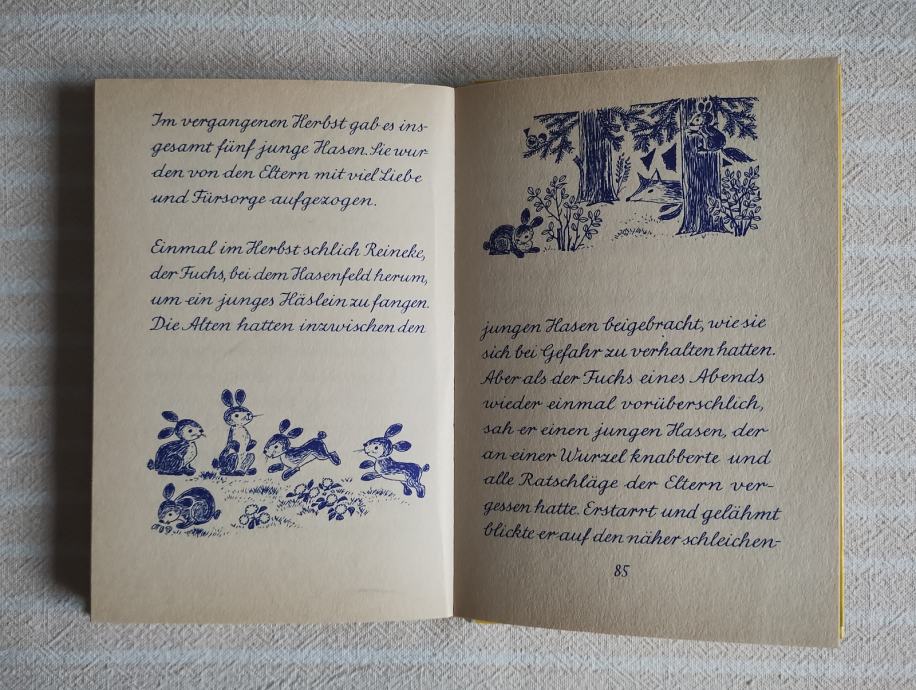 Im vergangenen Herbst gab es ins-
gesamt fünf junge Hasen. Sie wur-
den von den Eltern mit viel Liebe
und Fürsorge aufgezogen.
Einmal im Herbst schlich Reineke,
der Fuchs, bei dem Hasenfeld herum,
um ein junges Häslein zu fangen.
Die Alten hatten inzwischen den
jungen Hasen beigebracht, wie sie
sich bei Gefahr zu verhalten hatten.
Aber als der Fuchs eines Abends
wieder einmal vorüberschlich,
sah er einen jungen Hasen, der
an einer Wurzel knabberte und
alle Ratschläge der Eltern ver-
gessen hatte. Erstarrt und gelähmt
blickte er auf den näher schleichen-
85